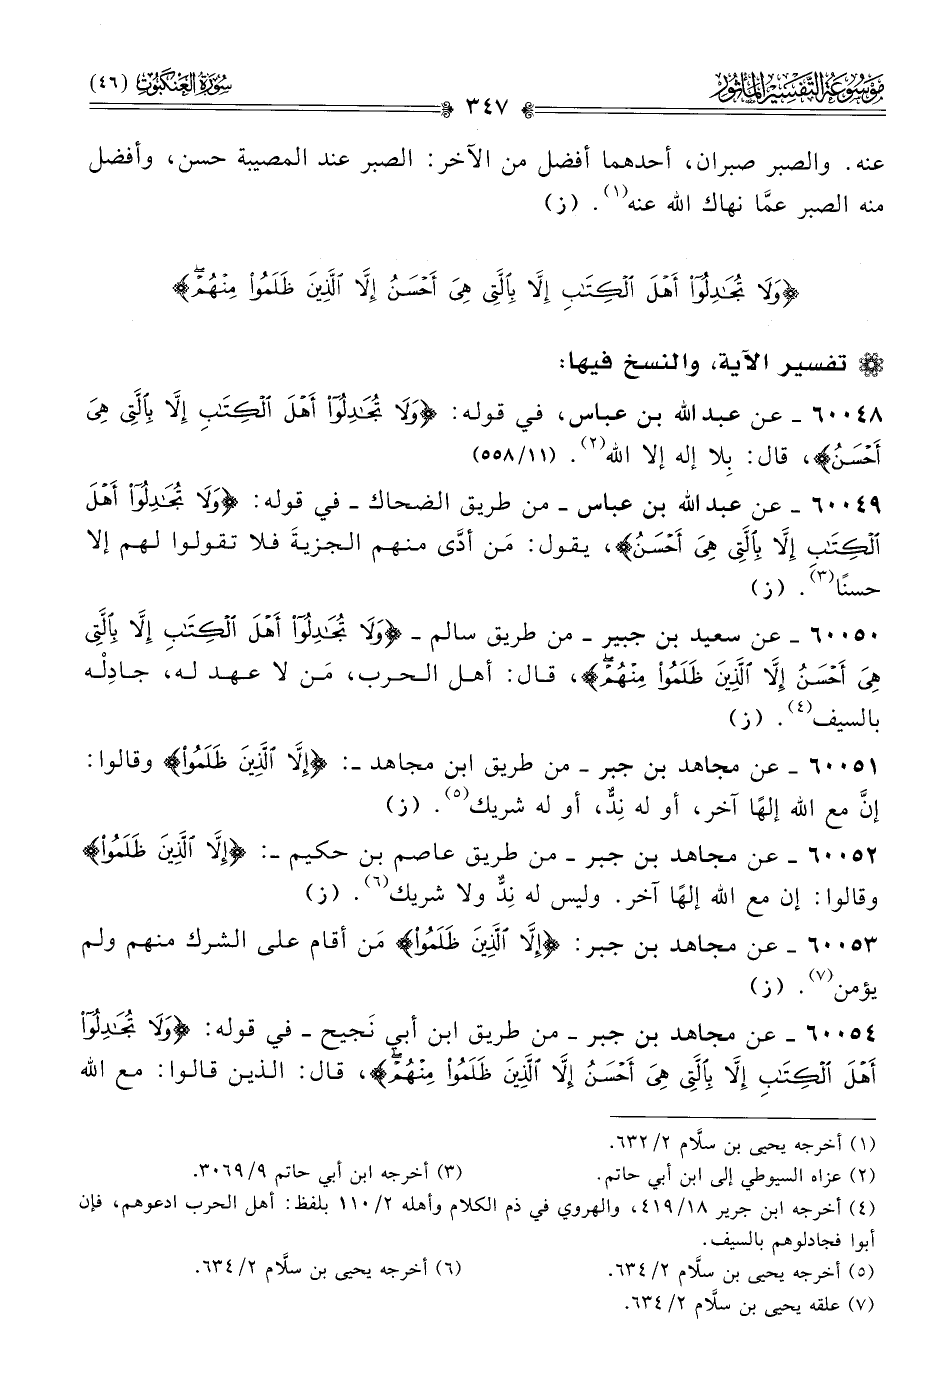 موسوعة التفسير المأثور
سورة العنكبوت (٤٦)
٣٤٧
عنه. والصبر صبران، أحدهما أفضل من الآخر: الصبر عند المصيبة حسن، وأفضل
منه الصبر عمَّا نهاك الله عنه(١). (ز)
﴿وَلَا تُجَٰدِلُوٓا۟ أَهْلَ ٱلْكِتَٰبِ إِلَّا بِٱلَّتِى هِىَ أَحْسَنُ إِلَّا ٱلَّذِينَ ظَلَمُوا۟ مِنْهُمْۖ﴾
تفسير الآية، والنسخ فيها:
٦٠٠٤٨ ـ عن عبد الله بن عباس، في قوله: ﴿وَلَا تُجَٰدِلُوٓا۟ أَهْلَ ٱلْكِتَٰبِ إِلَّا بِٱلَّتِى هِىَ
أَحْسَنُ﴾، قال: بِلا إله إلا الله(٢). (٥٥٨/١١)
٦٠٠٤٩ ـ عن عبد الله بن عباس ـ من طريق الضحاك ـ في قوله: ﴿وَلَا تُجَٰدِلُوٓا۟ أَهْلَ
ٱلْكِتَٰبِ إِلَّا بِٱلَّتِى هِىَ أَحْسَنُ﴾، يقول: مَن أدَّى منهم الجزيةَ فلا تقولوا لهم إلا
حسنًا(٣). (ز)
٦٠٠٥٠ ـ عن سعيد بن جبير ـ من طريق سالم ـ ﴿وَلَا تُجَٰدِلُوٓا۟ أَهْلَ ٱلْكِتَٰبِ إِلَّا بِٱلَّتِى
هِىَ أَحْسَنُ إِلَّا ٱلَّذِينَ ظَلَمُوا۟ مِنْهُمْۖ﴾، قال: أهل الحرب، مَن لا عهد له، جادِلْه
بالسيف(٤). (ز)
٦٠٠٥١ ـ عن مجاهد بن جبر ـ من طريق ابن مجاهد ـ: ﴿إِلَّا ٱلَّذِينَ ظَلَمُوا۟﴾ وقالوا:
إنَّ مع الله إلهًا آخر، أو له نِدٌّ، أو له شريك(٥). (ز)
٦٠٠٥٢ ـ عن مجاهد بن جبر ـ من طريق عاصم بن حكيم ـ: ﴿إِلَّا ٱلَّذِينَ ظَلَمُوا۟﴾
وقالوا: إن مع الله إلهًا آخر. وليس له نِدٌّ ولا شريك(٦). (ز)
٦٠٠٥٣ ـ عن مجاهد بن جبر: ﴿إِلَّا ٱلَّذِينَ ظَلَمُوا۟﴾ مَن أقام على الشرك منهم ولم
يؤمن(٧). (ز)
٦٠٠٥٤ ـ عن مجاهد بن جبر ـ من طريق ابن أبي نَجيح ـ في قوله: ﴿وَلَا تُجَٰدِلُوٓا۟
أَهْلَ ٱلْكِتَٰبِ إِلَّا بِٱلَّتِى هِىَ أَحْسَنُ إِلَّا ٱلَّذِينَ ظَلَمُوا۟ مِنْهُمْۖ﴾، قال: الذين قالوا: مع الله
(١) أخرجه يحيى بن سلَّام ٦٣٢/٢.
(٢) عزاه السيوطي إلى ابن أبي حاتم.
(٣) أخرجه ابن أبي حاتم ٣٠٦٩/٩.
(٤) أخرجه ابن جرير ٤١٩/١٨، والهروي في ذم الكلام وأهله ١١٠/٢ بلفظ: أهل الحرب ادعوهم، فإن
أبوا فجادلوهم بالسيف.
(٥) أخرجه يحيى بن سلَّام ٦٣٤/٢.
(٦) أخرجه يحيى بن سلَّام ٦٣٤/٢.
(٧) علقه يحيى بن سلَّام ٦٣٤/٢.